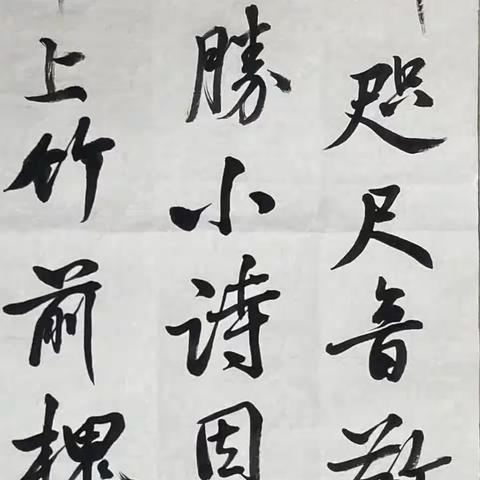 咫尺音
勝小詩因
上竹前